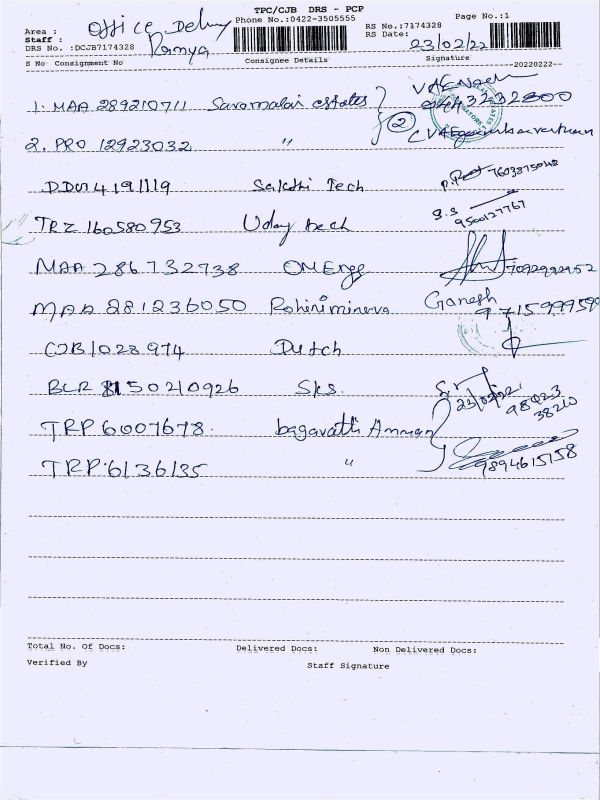 TPC/CJB DRS - PCP
Area : Office Delivery Phone No.:0422-3505555 Page No.:1
Staff : Ramya RS No.:7174328
DRS No. :DCJB7174328 RS Date: 23/02/22
S No Consignment No Consignee Details Signature
20220222
1. MAA 289210711 Saramalai estates
2. PRO 12923032 " 2
4191119 Sakthi Tech 7603875048
TRZ 160580953 Uday tech S.S 9500127767
MAA 286732738 OM Enge 7092992952
MAA 281236050 Rohini minerva Ganesh
CJB 1028974 Dutch
BLR 8150210926 Sks. 23/02/22
98423
38210
TRP 6007678. bagavathi Amman
TRP 6136135 " 9894615158
Total No. Of Docs: Delivered Docs: Non Delivered Docs:
Verified By Staff Signature